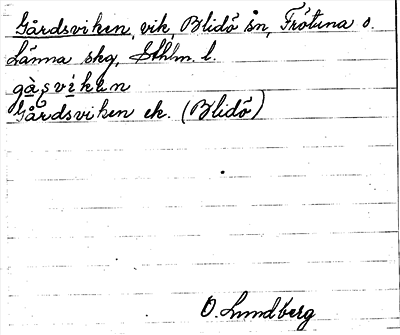 Gårdsviken, vik, Blidö sn, Frötuna o.
Länna skg, Sthlm. l.
gåṣvikɛn
Gårdsviken ek. (Blidö)
O. Lundberg